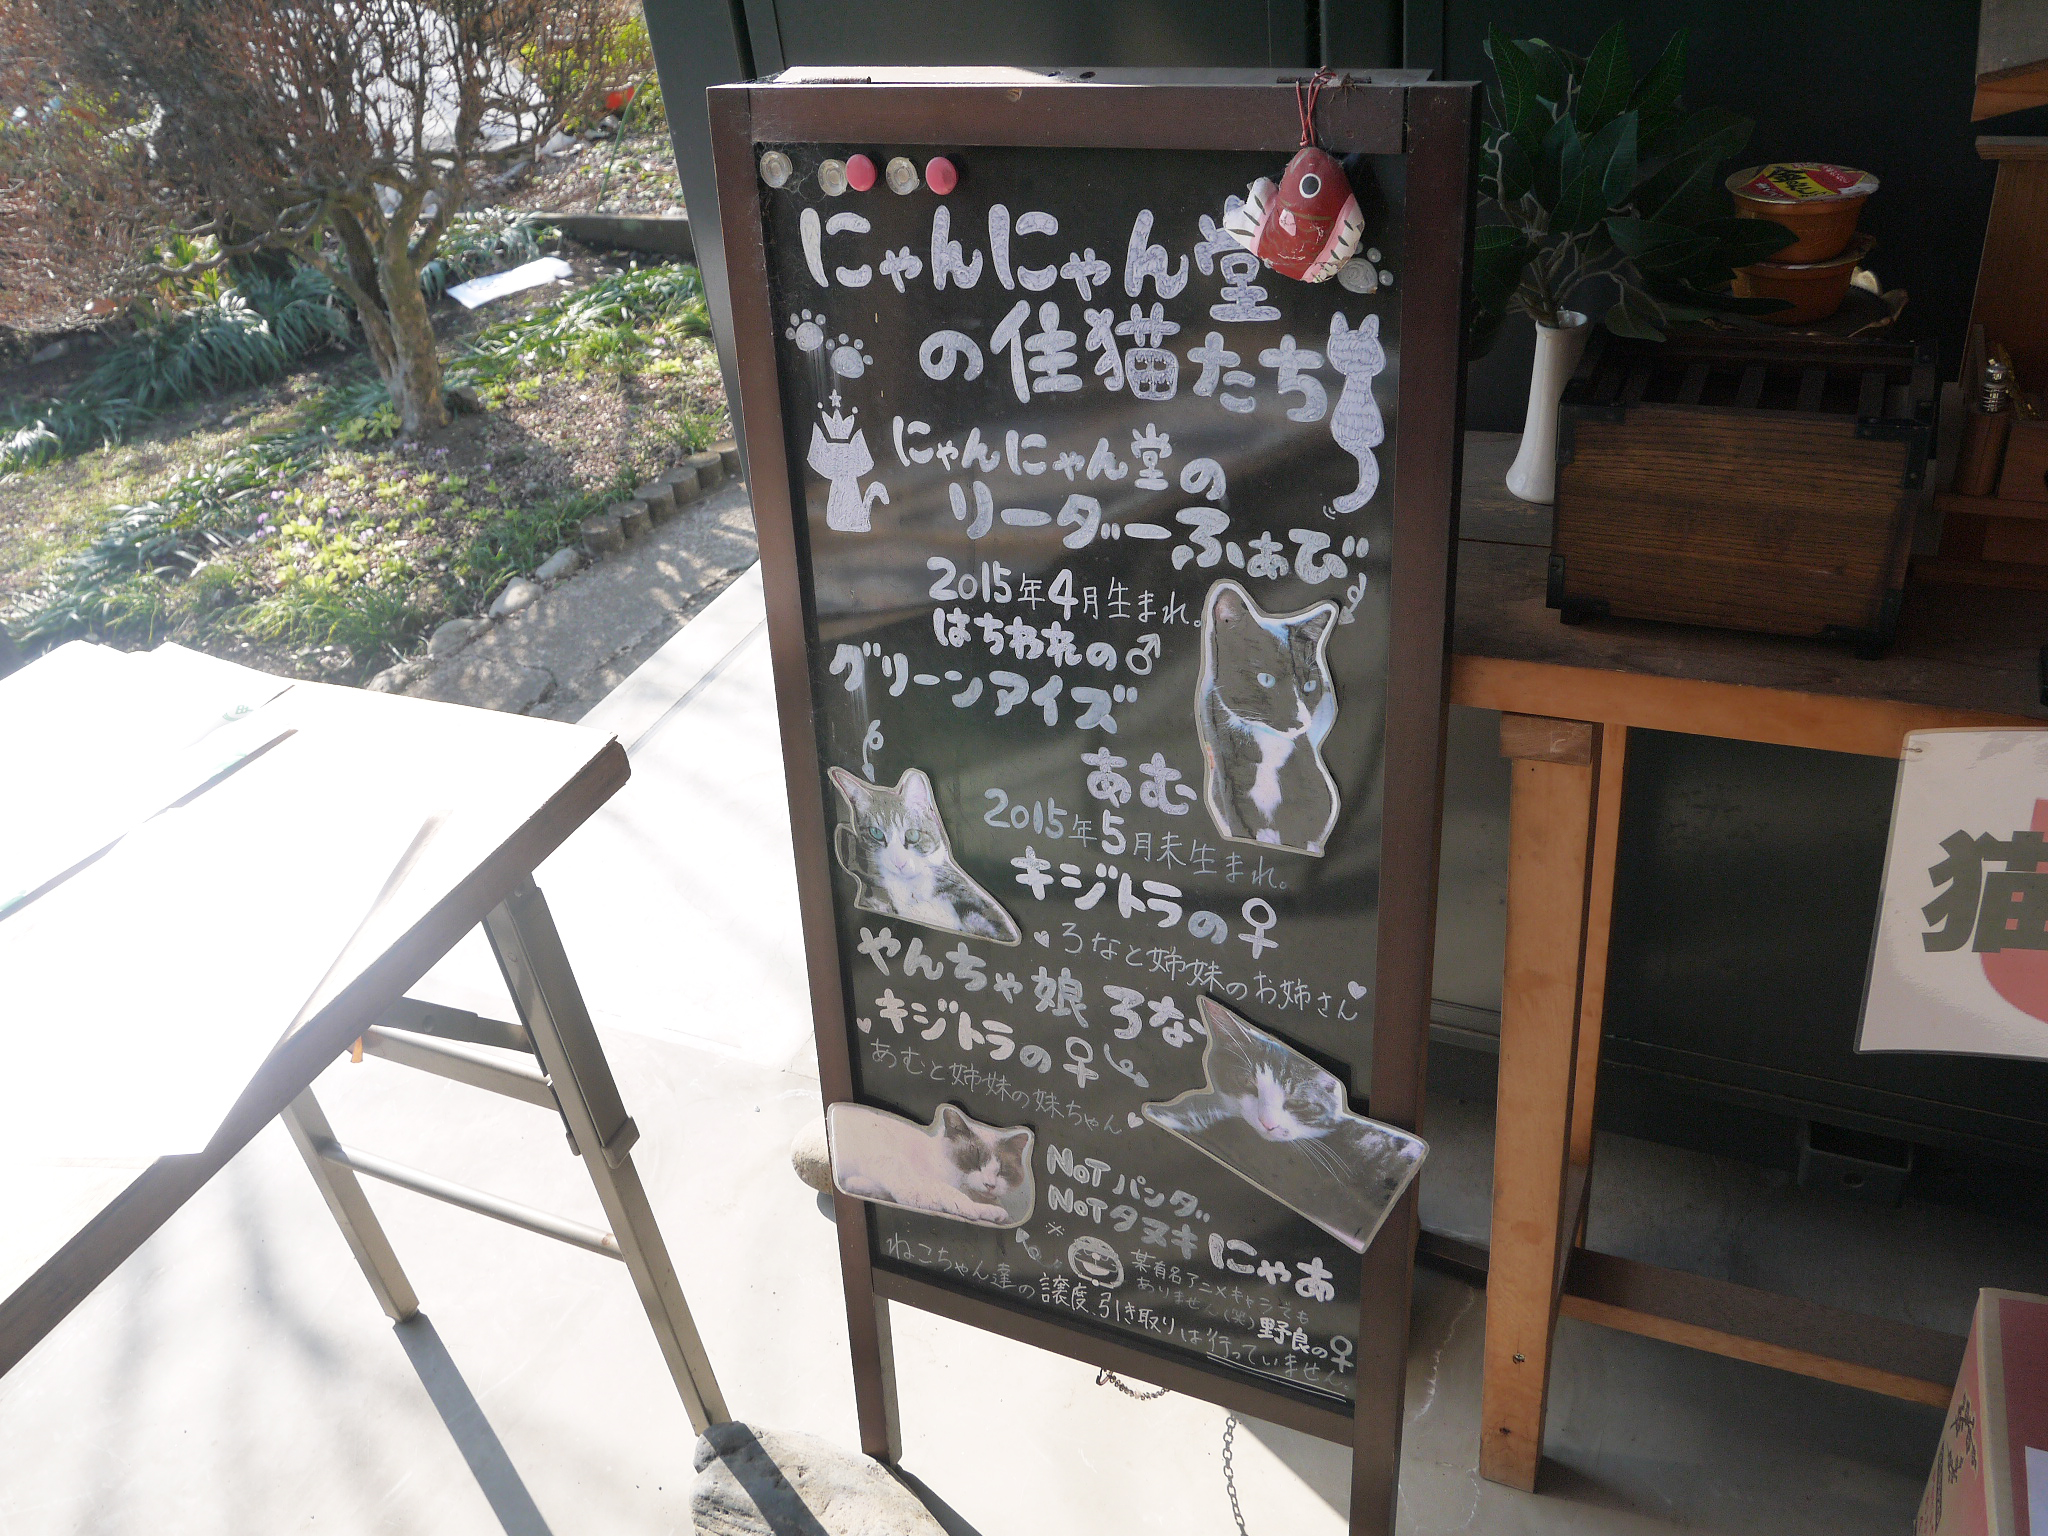 にゃんにゃん堂
の住猫たち
にゃんにゃん堂の
リーダーふぁび
2015年4月生まれ。
はちわれの♂
グリーンアイズ
あむ
2015年5月末生まれ。
キジトラの♀
ろなと姉妹のお姉さん
やんちゃ娘 ろな
キジトラの♀
あむと姉妹の妹ちゃん
NOTパンダ
NOTタヌキ
にゃあ
※
某有名アニメキャラでも
ありません(笑)
野良の♀
ねこちゃん達の譲度、引き取りは行っていません。
猫